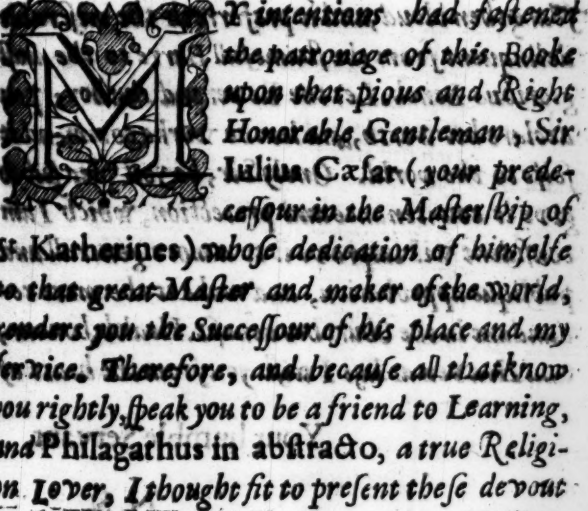 MY intentions had fastened
the patronage of this Booke
upon that pious and Right
Honorable Gentleman, Sir
Iulius Cæsar (your prede-
cessour in the Mastership of
St. Katherines) whose dedication of himselfe
to that great Master and maker of the world,
renders you the Successour of his place and my
service. Therefore, and because all that know
you rightly, speak you to be a friend to Learning,
and Philagathus in abstracto, a true Religi-
on Lover, I thought fit to present these devout